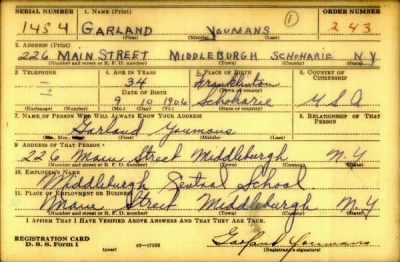 SERIAL NUMBER 1. NAME (Print) ORDER NUMBER
1454 GARLAND YOUMANS 1 243
(First) (Middle) (Last)
2. ADDRESS (Print)
226 MAIN STREET MIDDLEBURGH SCHOHARIE N.Y.
(Number and street or R. F. D. number) (Town) (County) (State)
3. TELEPHONE 4. AGE IN YEARS 5. PLACE OF BIRTH 6. COUNTRY OF CITIZENSHIP
34 Franklinton
DATE OF BIRTH (Town or county)
9 10 1906 Schoharie U.S.A.
(Exchange) (Number) (Mo.) (Day) (Yr.) (State or country)
7. NAME OF PERSON WHO WILL ALWAYS KNOW YOUR ADDRESS 8. RELATIONSHIP OF THAT PERSON
Garland Youmans
9. ADDRESS OF THAT PERSON
226 Main Street Middleburgh N.Y.
(Number and street or R. F. D. number) (Town) (County) (State)
10. EMPLOYER'S NAME
Middleburgh Central School
11. PLACE OF EMPLOYMENT OR BUSINESS
Main Street Middleburgh N.Y.
(Number and street or R. F. D. number) (Town) (County) (State)
I AFFIRM THAT I HAVE VERIFIED ABOVE ANSWERS AND THAT THEY ARE TRUE.
REGISTRATION CARD
D. S. S. Form 1 (over) 16-17105 Garland Youmans
(Registrant's signature)